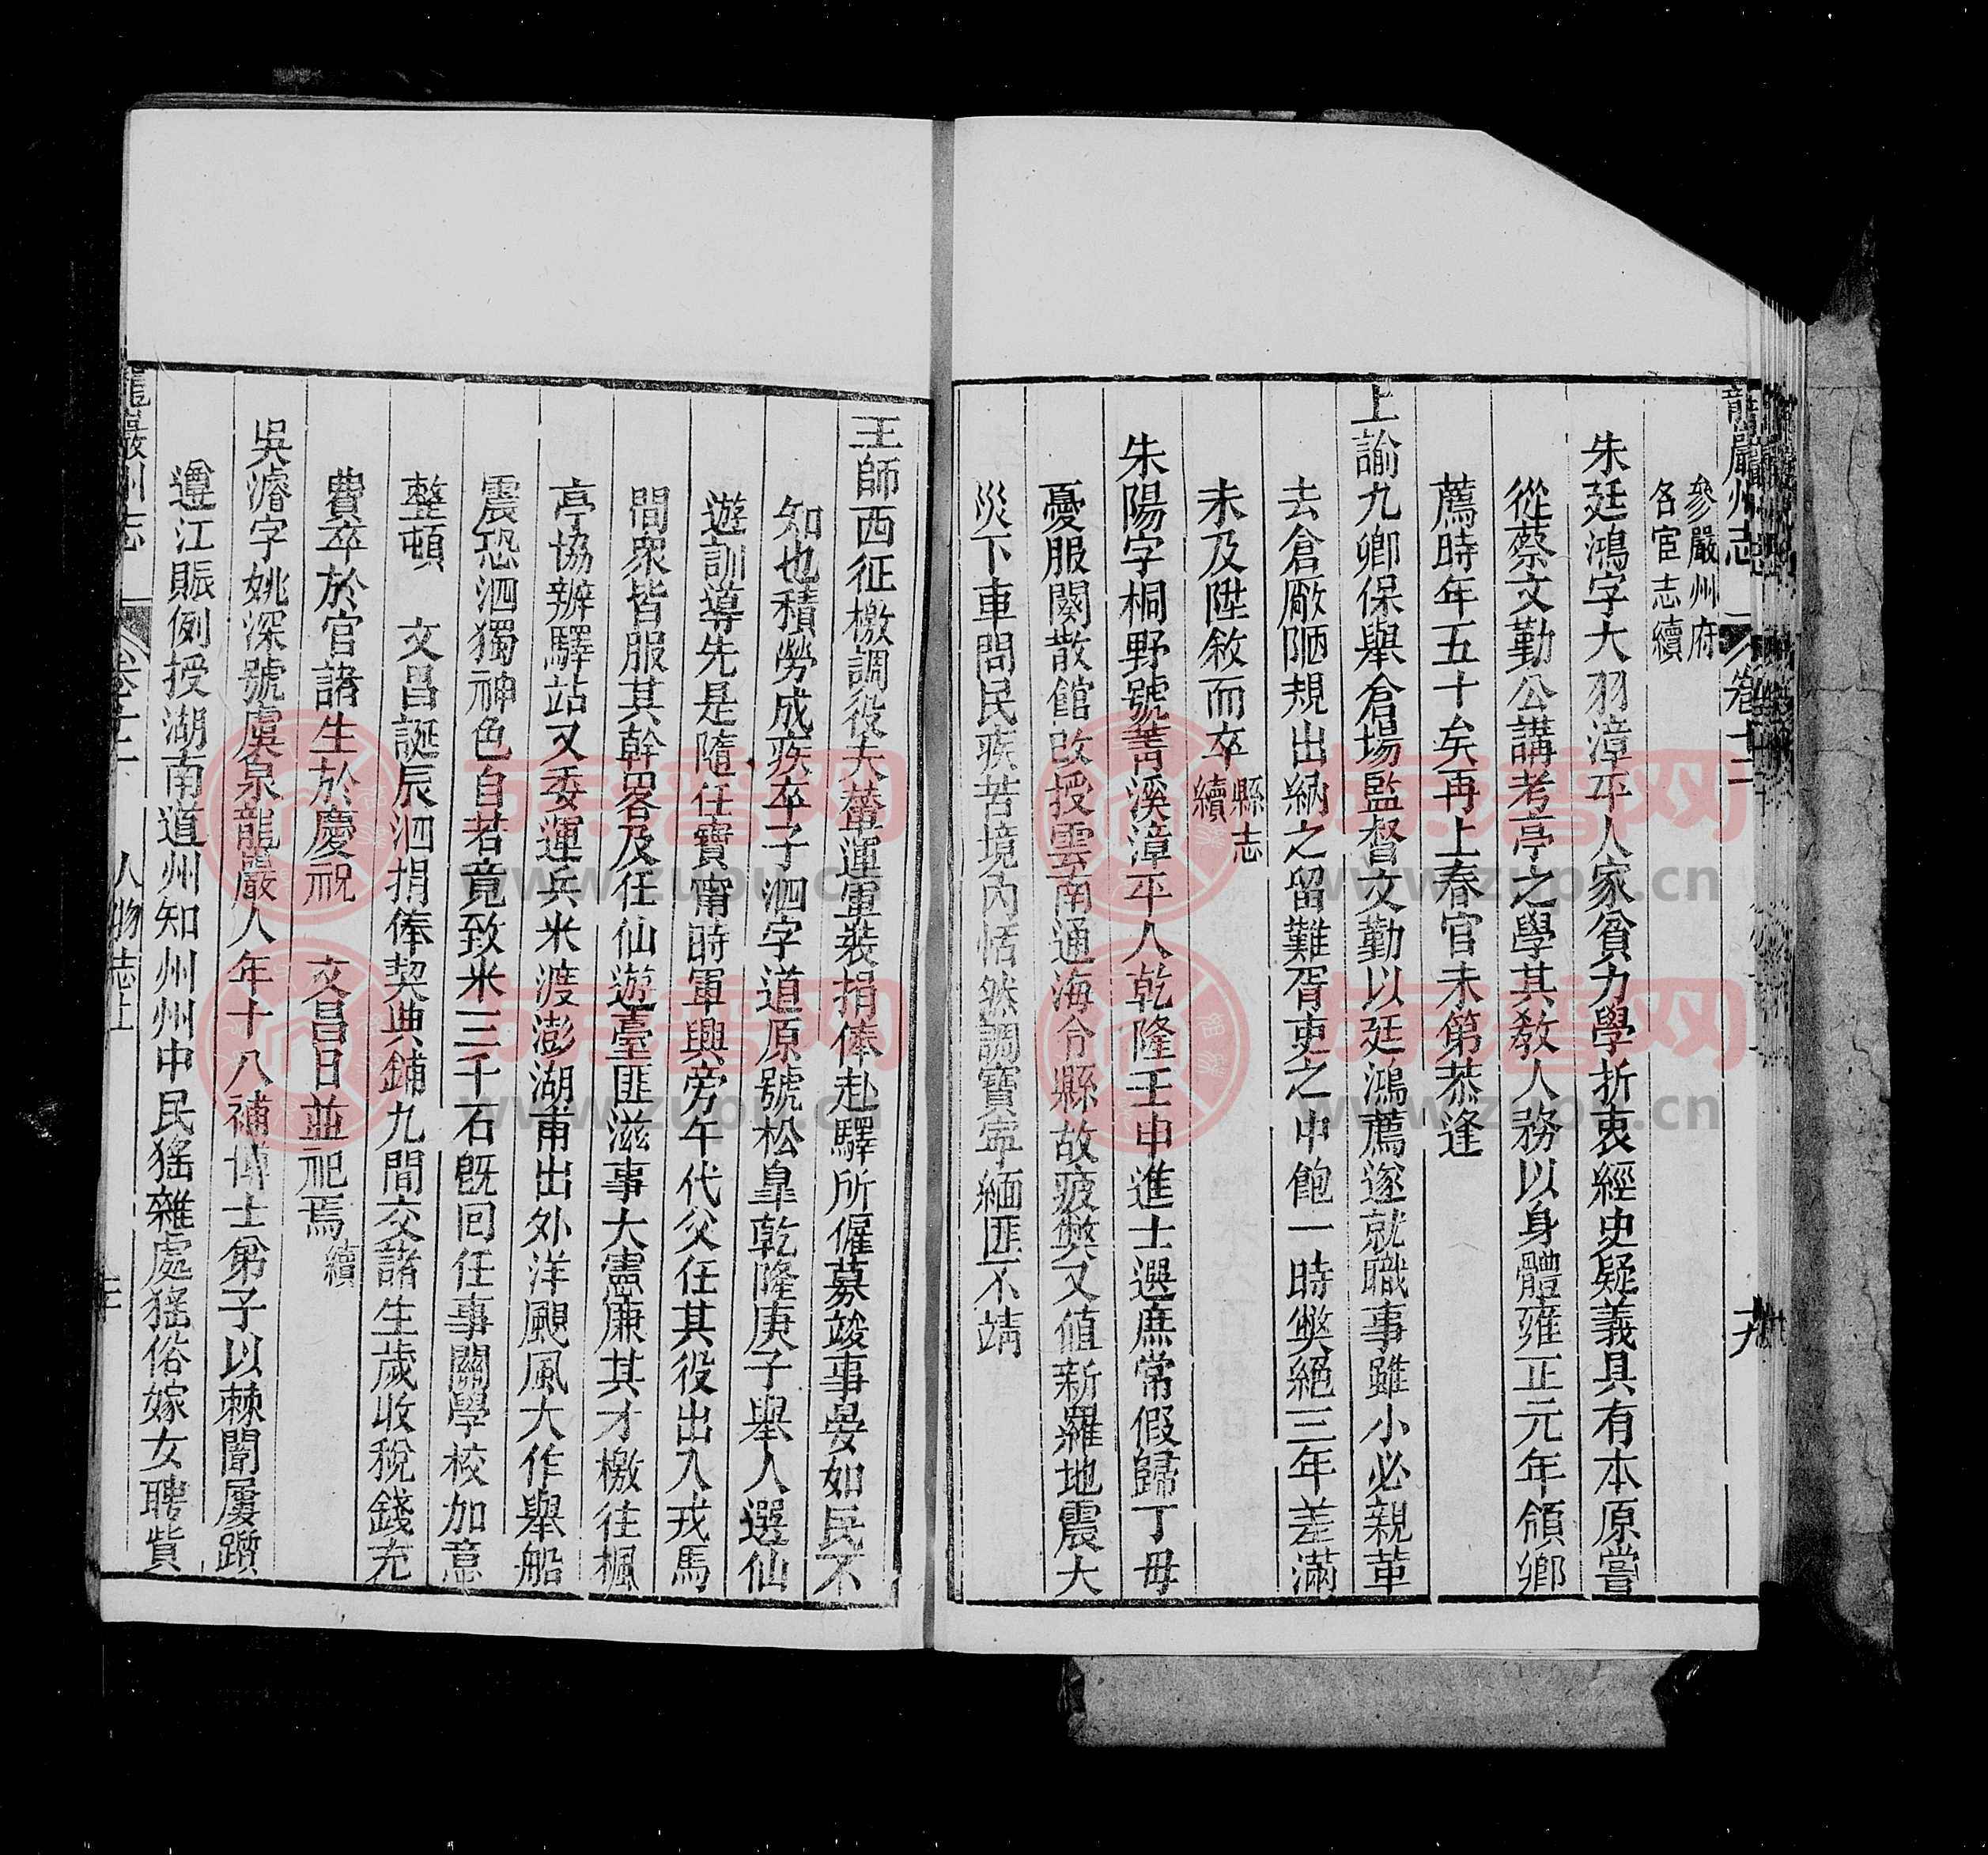 龍巖州志 卷十二 十九
參嚴州府
名宦志續
朱廷鴻字大羽漳平人家貧力學折衷經史疑義具有本原嘗
從蔡文勤公講考亭之學其教人務以身體雍正元年領鄉
薦時年五十矣再上春官未第恭逢
上諭九卿保舉倉場監督文勤以廷鴻薦遂就職事雖小必親革
去倉廠陋規出納之留難胥吏之中飽一時獘絕三年差滿
未及陞敘而卒
縣志
續
朱陽字桐野號菁溪漳平人乾隆壬申進士選庶常假歸丁母
憂服闋散館改授雲南通海令縣故疲獘又值新羅地震大
災下車問民疾苦境內恬然調寶寧緬匪不靖
王師西征檄調役夫輦運軍裝捐俸赴驛所僱募竣事晏如民不
知也積勞成疾卒子泗字道原號松皐乾隆庚子舉人選仙
遊訓導先是隨任寶甯時軍興旁午代父任其役出入戎馬
間衆皆服其幹畧及任仙遊臺匪滋事大憲廉其才檄往楓
亭協辦驛站又委運兵米渡澎湖甫出外洋颶風大作舉船
震恐泗獨神色自若竟致米三千石旣囘任事關學校加意
整頓 文昌誕辰泗捐俸契典鋪九間交諸生歲收稅錢充
費卒於官諸生於慶祝 文昌日並祀焉
續
吳濬字姚深號虞泉龍巖人年十八補博士弟子以棘闈屢躓
遵江賑例授湖南道州知州州中民猺雜處猺俗嫁女聘貲
龍巖州志 卷十二 人物志上 二十